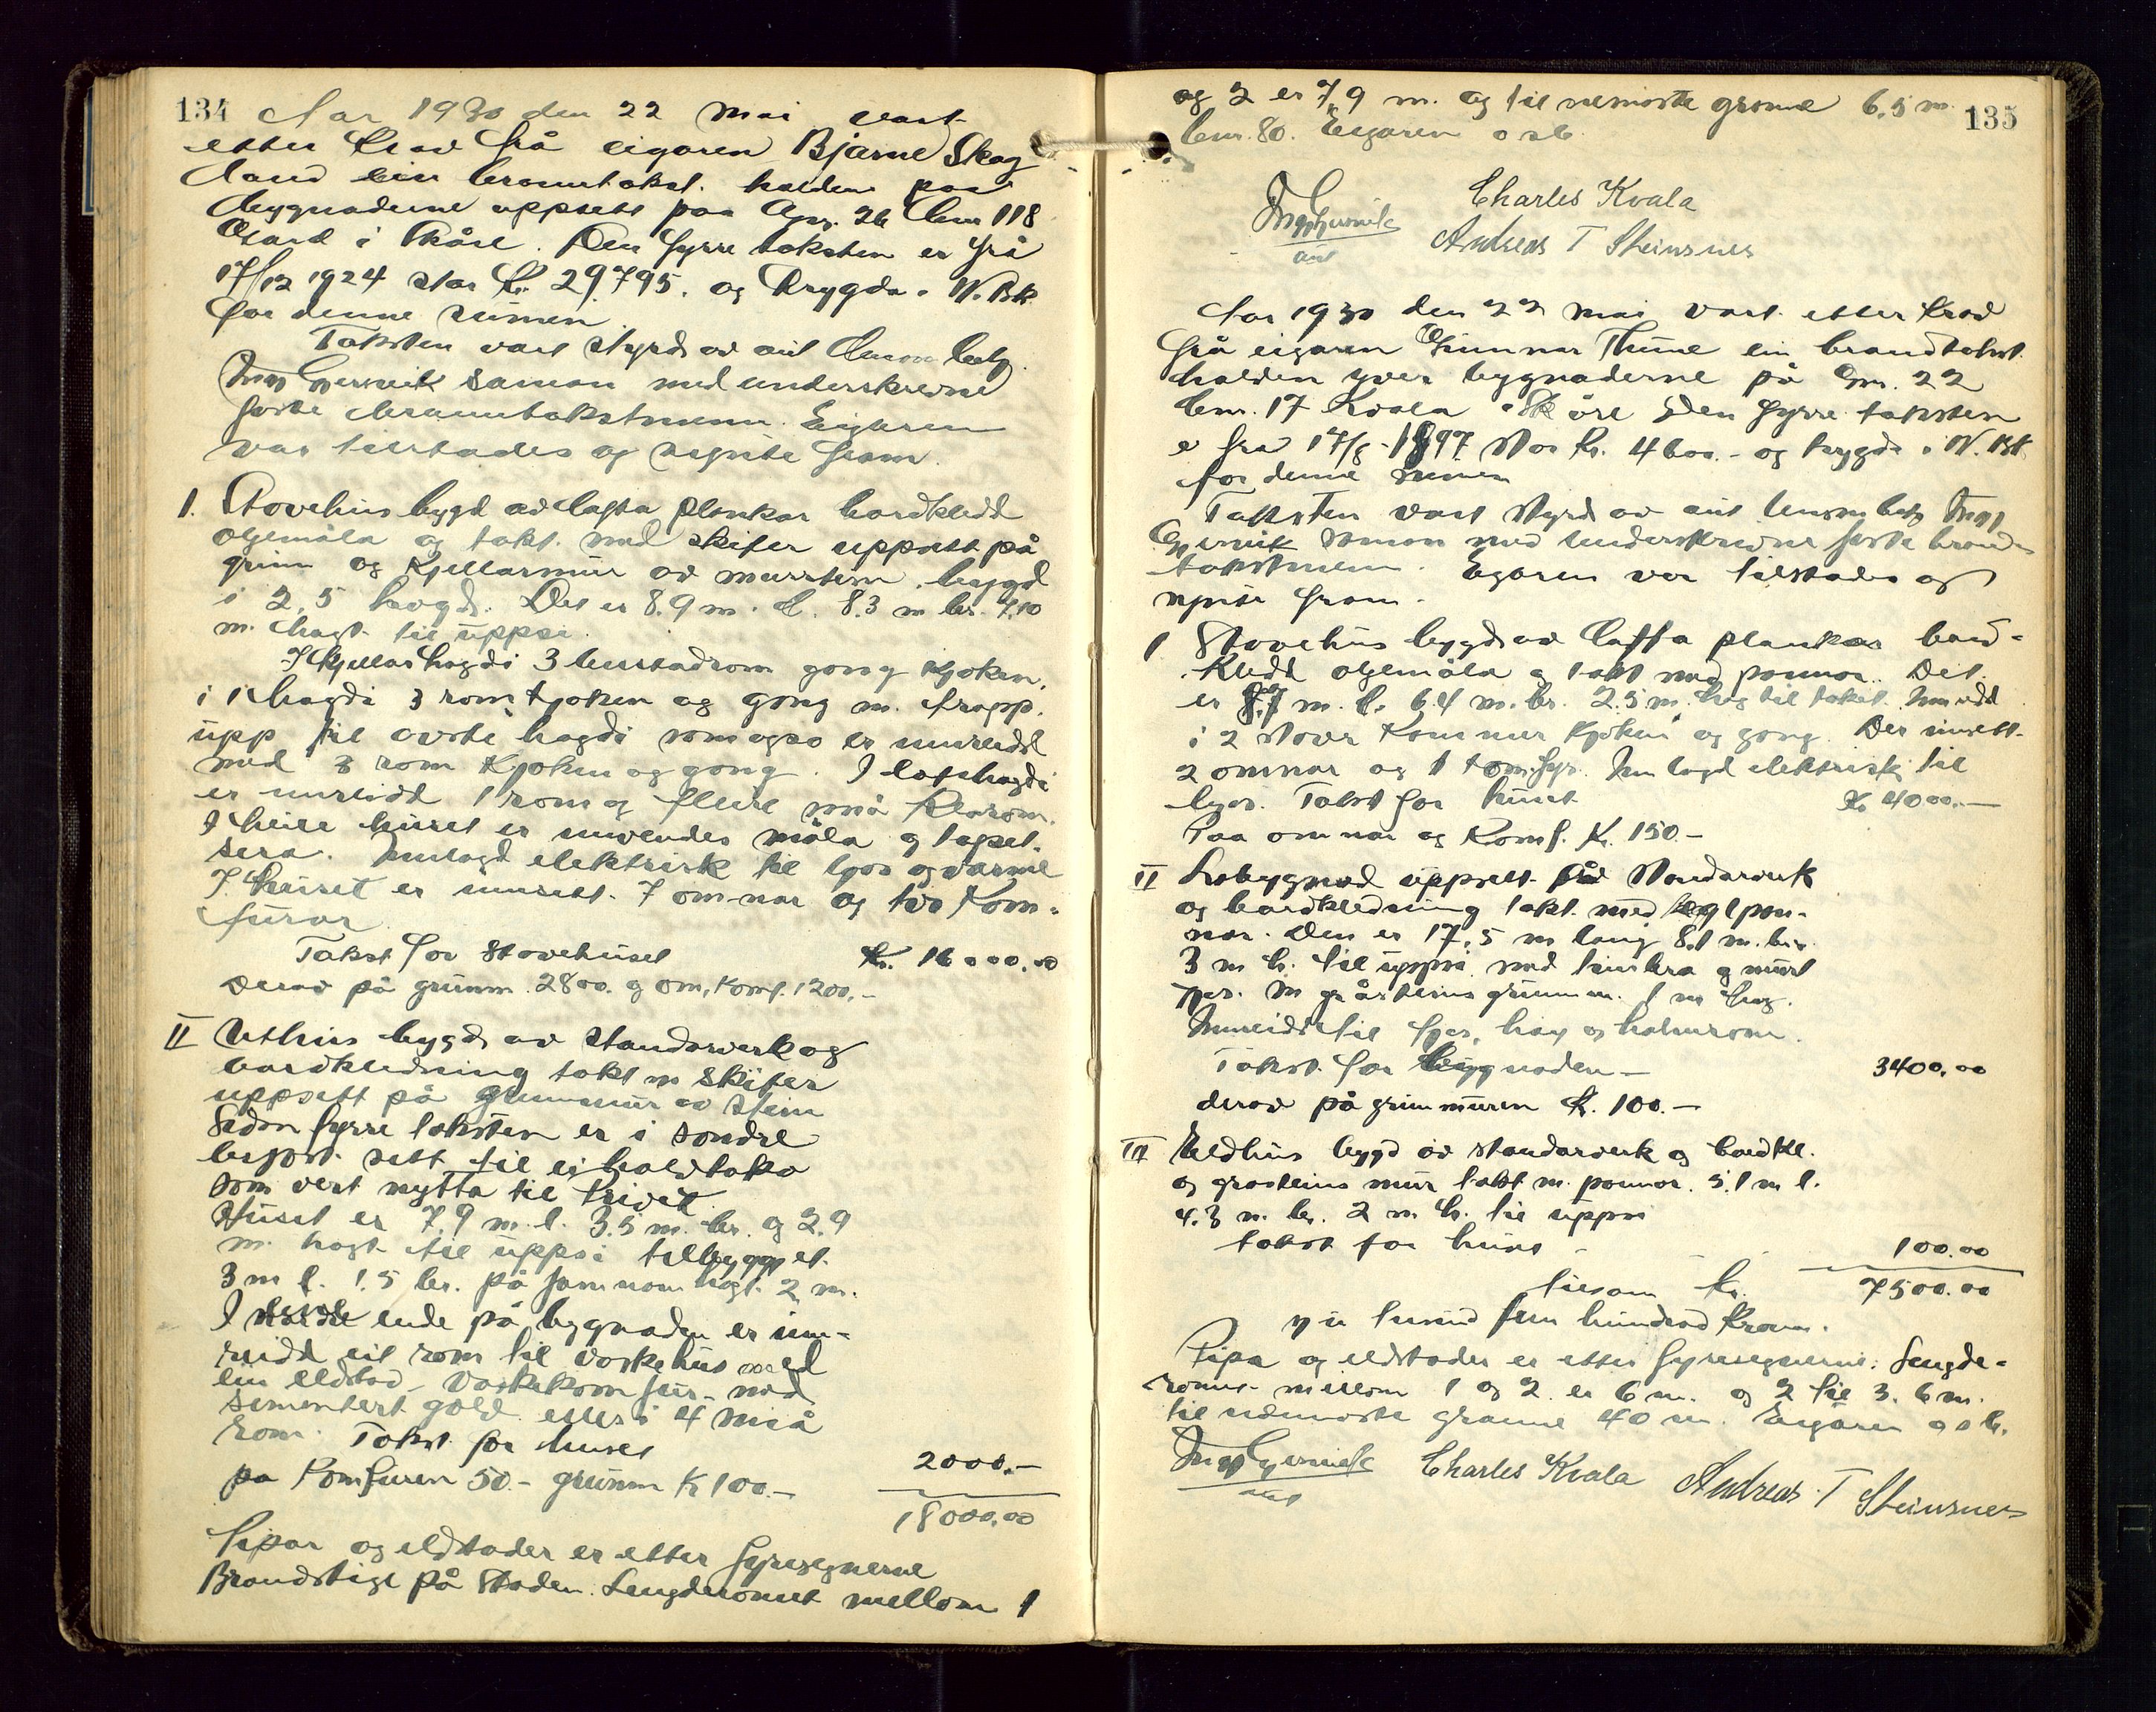 134
Aar 1930 den 22 mai vart
etter krav frå eigaren Bjarne Skog
land ein branntakst halden paa
bygnaderne uppsett paa Gnr. 26 bnr 118
i Skåre. Den fyrre taksten er frå
17/12 1924 stor kr. 29795. og trygda i N. Bk.
for denne sumen.
Taksten vart styrd av aut lensm betj.
Inga Gjernvik saman med underskrevne
faste branntakstmenn. Eigaren
var tilstades og synte fram.
1. Stovehus bygd av lafta plankar bordkledd
oljemåla og takt med skifer uppsett på
grunn og kjellarmur av murstein, bygd
i 2,5 høgd. Det er 8.9 m. l. 8.3 m br. 7,10
m. høgt til uppsi.
I kjellarhøgdi 3 bustadrom gong kjøken,
i 1 høgdi 3 rom kjøken og gong m. trapp.
upp til øvste høgdi som ogso er innreidd
med 3 rom kjøken og gong. I loftshøgdi
er innreidd 1 rom og fleire små klærom.
I heile huset er innvendes måla og tapet-
sera. Innlagd elektrisk til ljos og varme
I huset er innsett 7 omnar og tvo kom-
fürar
Takst for stovehuset kr. 16000.00
derav på grunnm. 2800. og om, komf. 1200.-
II Uthus bygd av standarverk og
bordkledning takt m skifer
uppsett på grunnmur av stein
Sidan fyrre taksten er i søndre
bygst sett til ei halvtaka
som vert nytta til privet.
Huset er 7.9 m. l. 3.5 m. br. og 2.9
m. høgt til uppsi tilbygget
3 m l. 1.5 br. på jamnom høgt. 2 m.
I nordre ende på bygnaden er inn-
reidd eit rom til vaskehus med
ein eldstad - vaskekomfur - med
sementert golv. elles i 4 små
rom. Takst for huset
2000.-
på komfuren 50.- grunnm k 100.-
18000.00
Pipor og eldstader er etter fyresegnerne
Brandstige på staden. Lengderomet mellom 1
og 2 er 7,9 m. og til nemaste granne 6.5 m. 135
bnr. 80. Eigaren o s b
Inga Gjernvik Charles Kvala
aut Andreas T Steinsnes
Aar 1930 den 22 mai vart etter krav
frå eigaren Gunnar Thune ein brandtakst
halden yver bygnaderne på Gnr. 22
bnr. 17 Kvala i Skåre Den fyrre taksten
er fra 17/8-1897 stor kr. 4600.- og trygda i N. Bk
for denne sumen
Taksten vart styrd av aut lensm betj Inga
Gjernvik saman med underskrevne faste brand
takstmenn. Eigaren var tilstades og
synte fram.
1 Stovehus bygd av lafta plankar bord-
kledd oljemåla og takt med pannor. Det
er 8.7 m. l. 6.4 m. br. 2.5 m. høg til taket. Innreidd
i 2 stover kammer kjøken og gong. Der innsett
2 omnar og 1 komfyr. Innlagd elektrisk til
ljos. Takst for huset Kr 4000.-
Paa omnar og komf. kr. 150.-
II Løbygnad uppsett på standarverk
og bordkledning takt med teglpan-
nor. Den er 17,5 m lang 8.1 m. br.
3 m h. til uppsi med timbra og murt
fjos. m gråsteins grunnm. 1 m høg.
Innreidd til fjos, høy og halmrom.
Takst for bygnaden - 3400.00
derav på grunnmuren kr. 100.-
III Eldhus bygd av standarverk og bordkl.
og grasteins mur takt m. pannor. 5.1 m l.
4.3 m. br. 2 m h. til uppsi
takst for huset - 100.00
tilsam kr. 7500.00
sju tusund fem hundrad kronur.
Pipa og eldstader er etter fyresegnerne. Lengde-
romet millom 1 og 2 er 6 m. og 2 til 3. 6 m.
til nemaste granne 40 m. Eigaren o s b.
Inga Gjernvik Charles Kvala Andreas T Steinsnes
aut